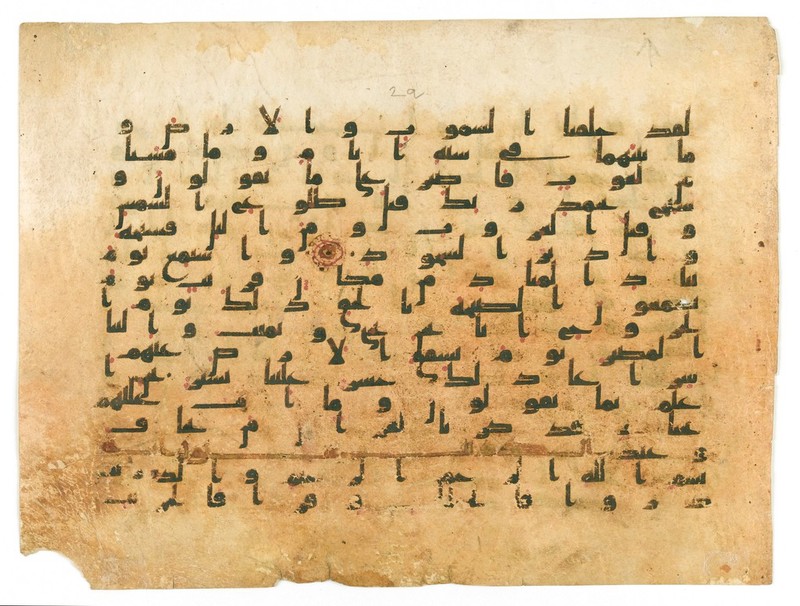 29
لقد خلقنا السموت والارض و
ما بينهما في ستة ايام وما مسنا
من لغوب فاصبر على ما يقولون و
سبح بحمد ربك قبل طلوع الشمس
وقبل الغروب ومن اليل فسبحه
وادبر السجود واستمع يوم
يناد المناد من مكان قريب يوم
يسمعون الصيحة بالحق ذلك يوم ا
لخروج انا نحن نحي ونميت والينا
المصير يوم تشقق الارض عنهم
سراعا ذلك حشر علينا يسير نحن ا
علم بما يقولون وما انت عليهم
بجبار فذكر بالقران من يخاف
وعيد
بسم الله الرحمن الرحيم والذريت
ذروا فالحملت وقرا فالجريت